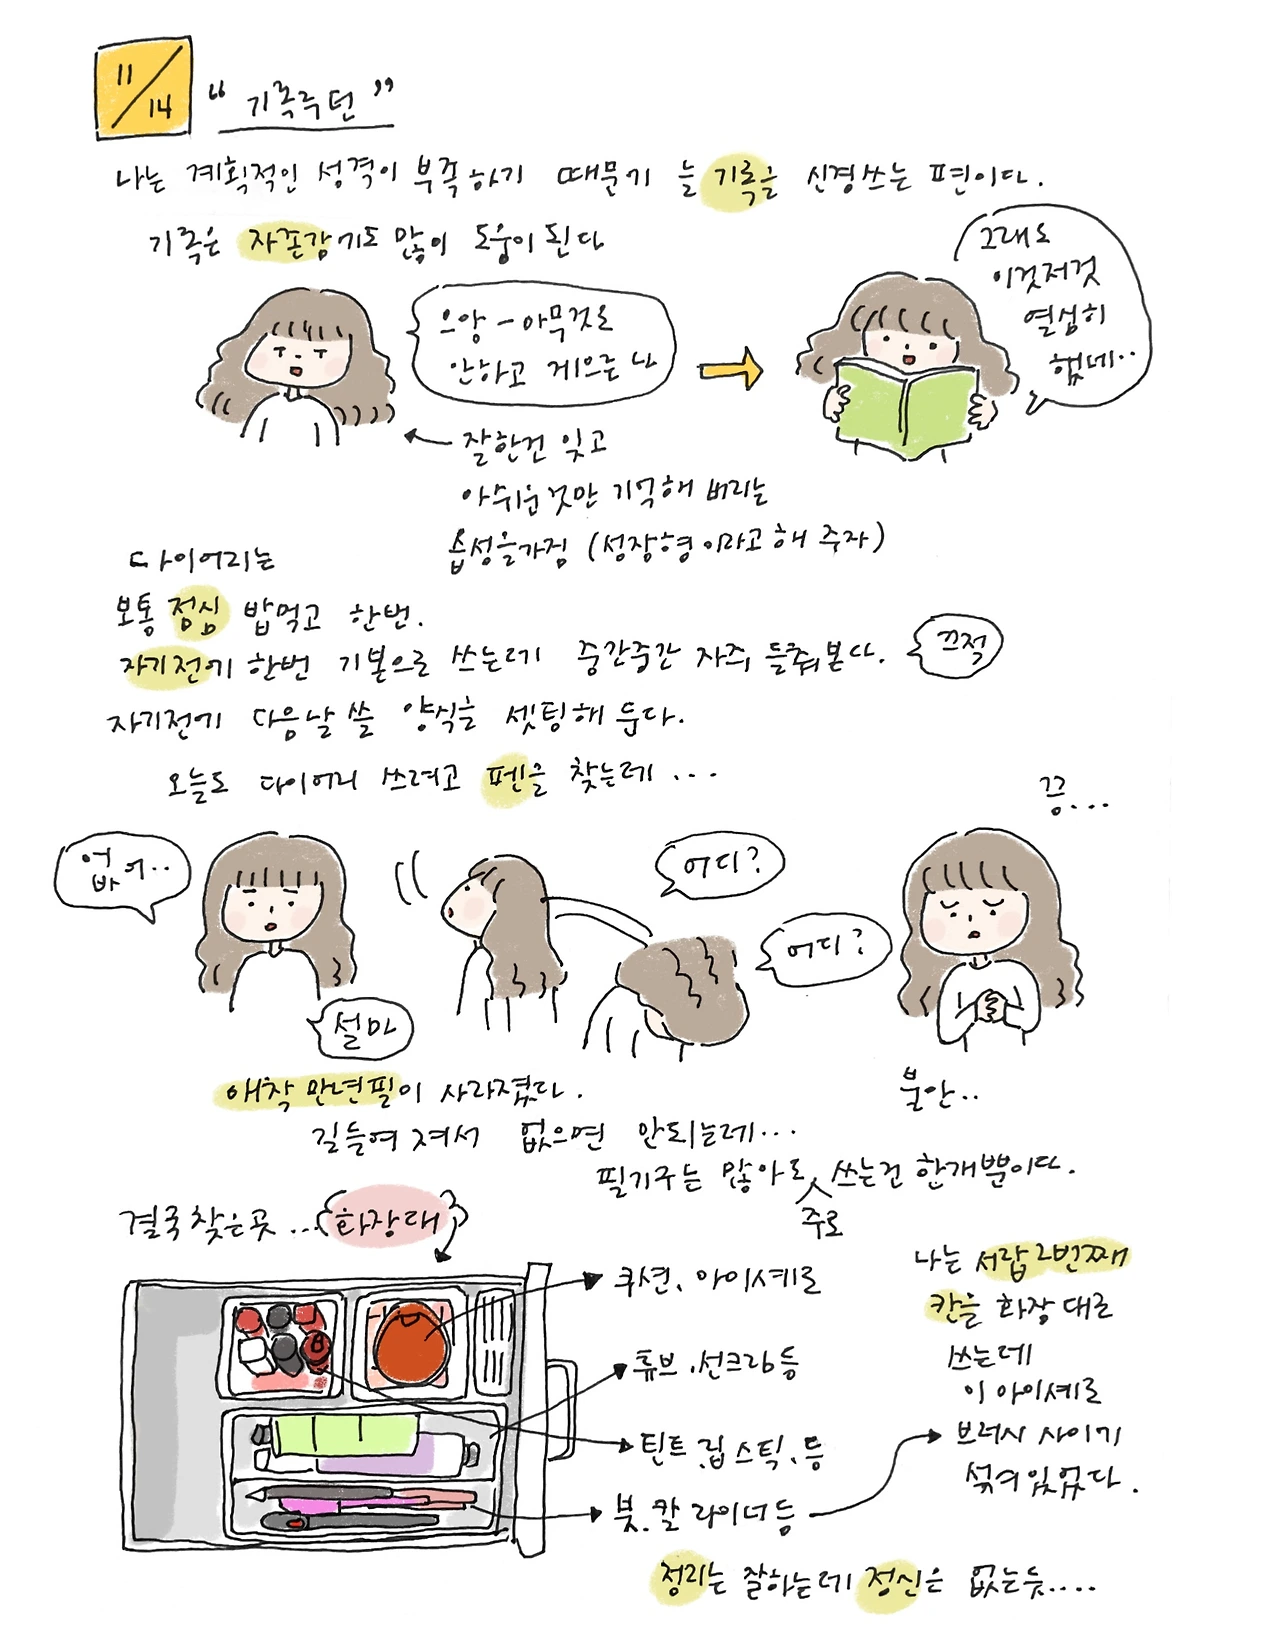 11/14
"기록루던"
나는 계획적인 성격이 부족하기 때문에 늘 기록을 신경쓰는 편이다.
기록은 자존감에도 많이 도움이 된다
으앙 - 아무것도
안하고 게으른 나
그래도
이것저것
열심히
했네..
잘한건 잊고
아쉬운것만 기억해 버리는
습성을가짐 (성장형이라고 해 주자)
다이어리는
보통 점심 밥먹고 한번.
자기전에 한번 기본으로 쓰는데 중간중간 자주 들춰본다.
끄적
자기전에 다음날 쓸 양식을 셋팅해 둔다.
오늘도 다이어리 쓰려고 펜을 찾는데 ...
끙...
업
바 어..
설마
어디?
어디?
불안..
애착 만년필이 사라졌다.
길들여 져서 없으면 안되는데...
필기구는 많아도 쓰는건 한개뿐이다.
주로
결국 찾은곳 ... 화장대
쿠션, 아이섀도
튜브. 선크림 등
틴트.립스틱. 등
붓. 칼 라이너 등
나는 서랍 2번째
칸을 화장 대로
쓰는데
이 아이섀도
브러시 사이에
섞여있었다.
정리는 잘하는데 정신은 없는듯....